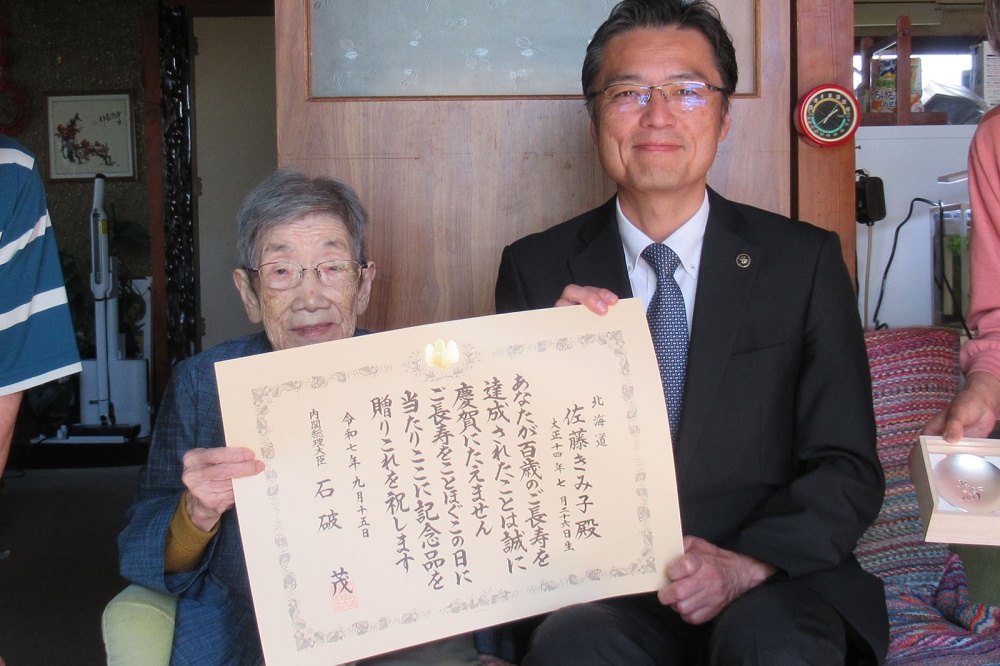 北海道
佐藤きみ子殿
大正十四年七月二六日生
あなたが百歳のご長寿を
達成されたことは誠に
慶賀にたえません
ご長寿をことほぐこの日に
当たりここに記念品を
贈りこれを祝します
令和七年九月十五日
内閣総理大臣 石破 茂